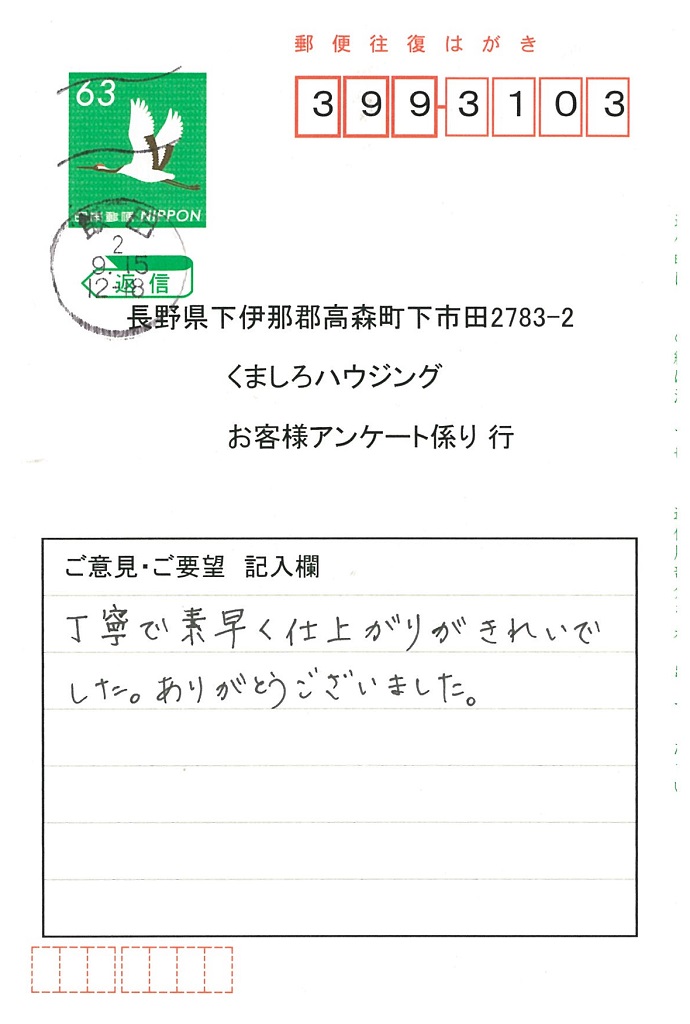 郵便往復はがき
63
399-3103
日本郵便 NIPPON
2
9.15
12-18
返信
長野県下伊那郡高森町下市田2783-2
くましろハウジング
お客様アンケート係り 行
ご意見・ご要望 記入欄
丁寧で素早く仕上がりがきれいで
した。ありがとうございました。